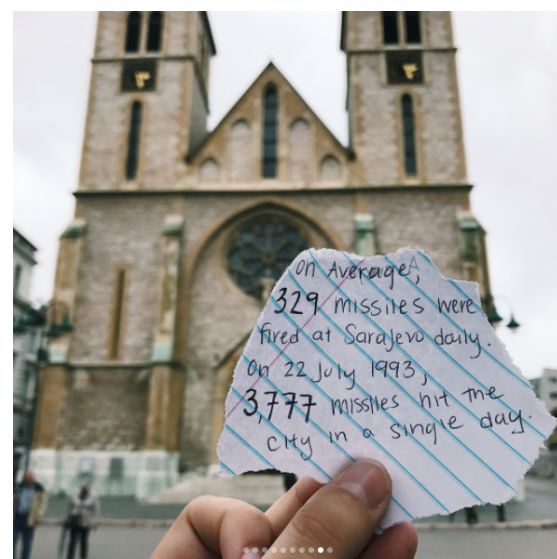 On Average,
329 missiles were
fired at Sarajevo daily.
On 22 July 1993,
3,777 missiles hit the
city in a single day.